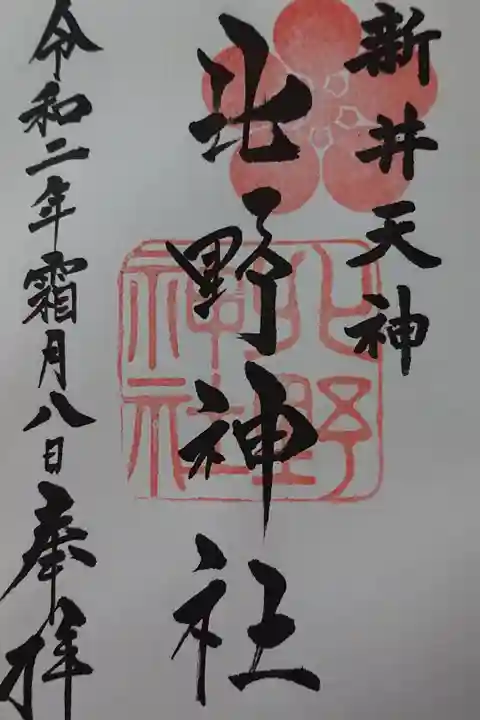 新井天神
北野神社
北野
神社
令和二年霜月八日奉拝